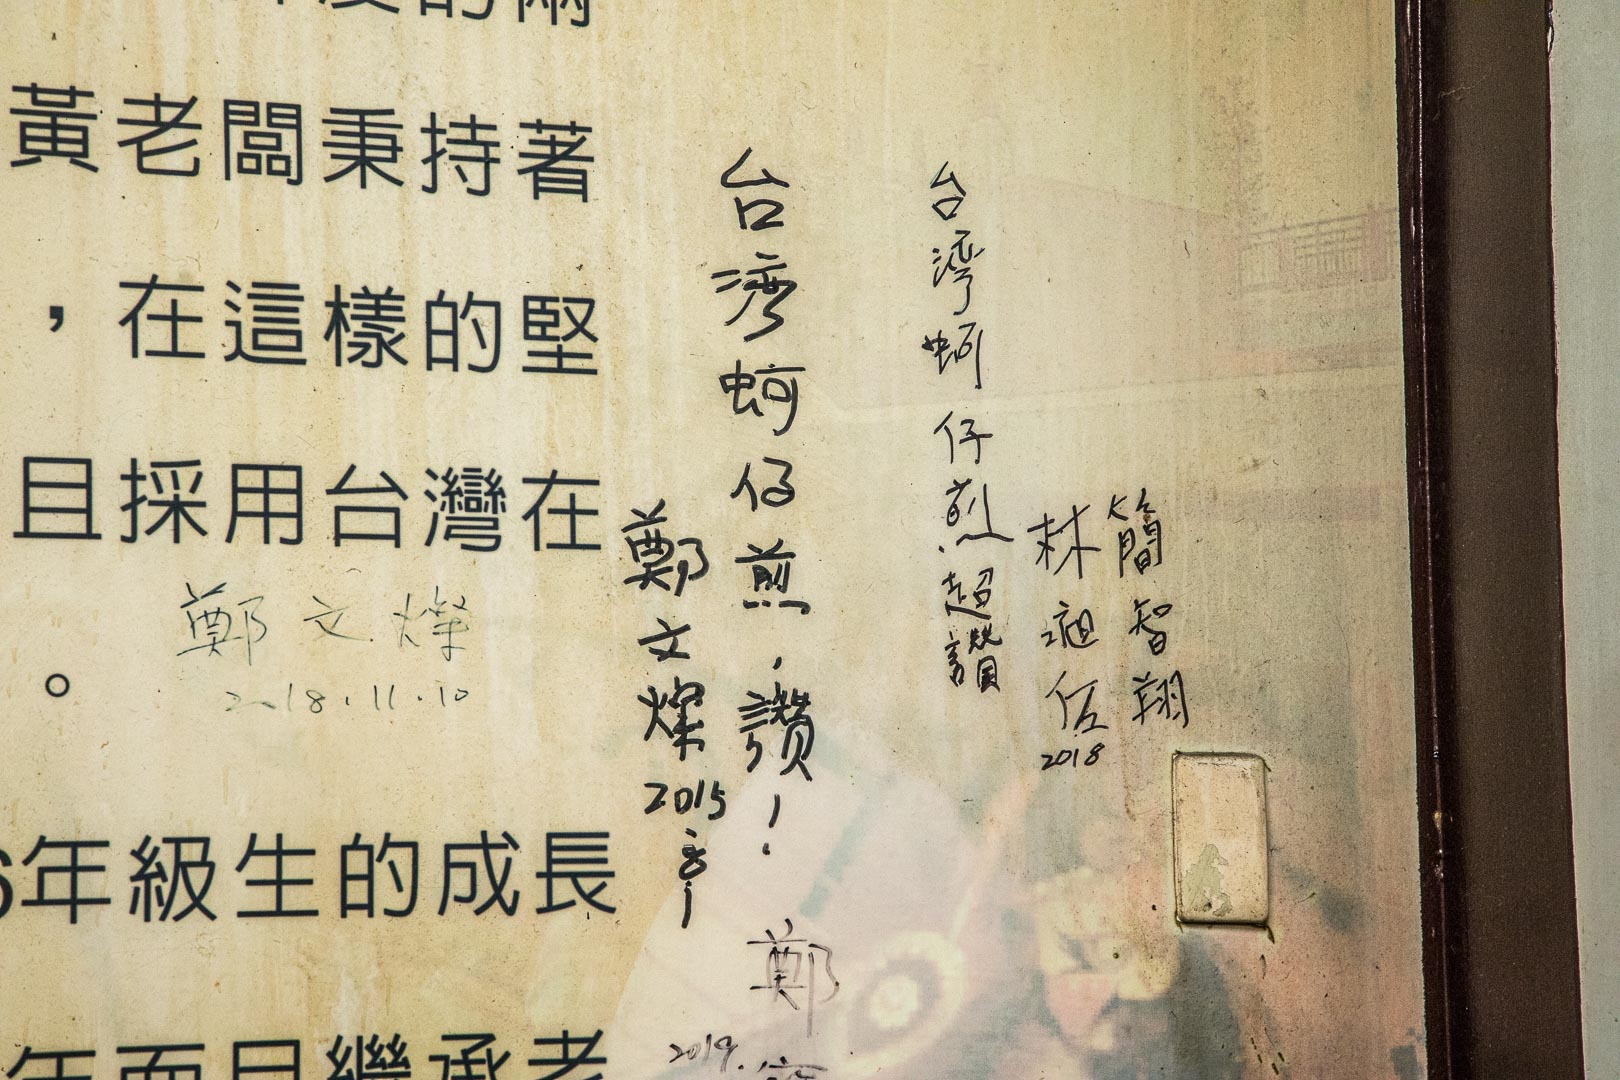 度的兩
黃老闆秉持著
，在這樣的堅
且採用台灣在
。
6年級生的成長
年而且繼承老
鄭文燦
2018.11.10
台湾蚵仔煎，讚！
鄭文燦
2015
台湾蚵仔煎．超讚
簡智翔
林沺佐
2018
鄭
2019.